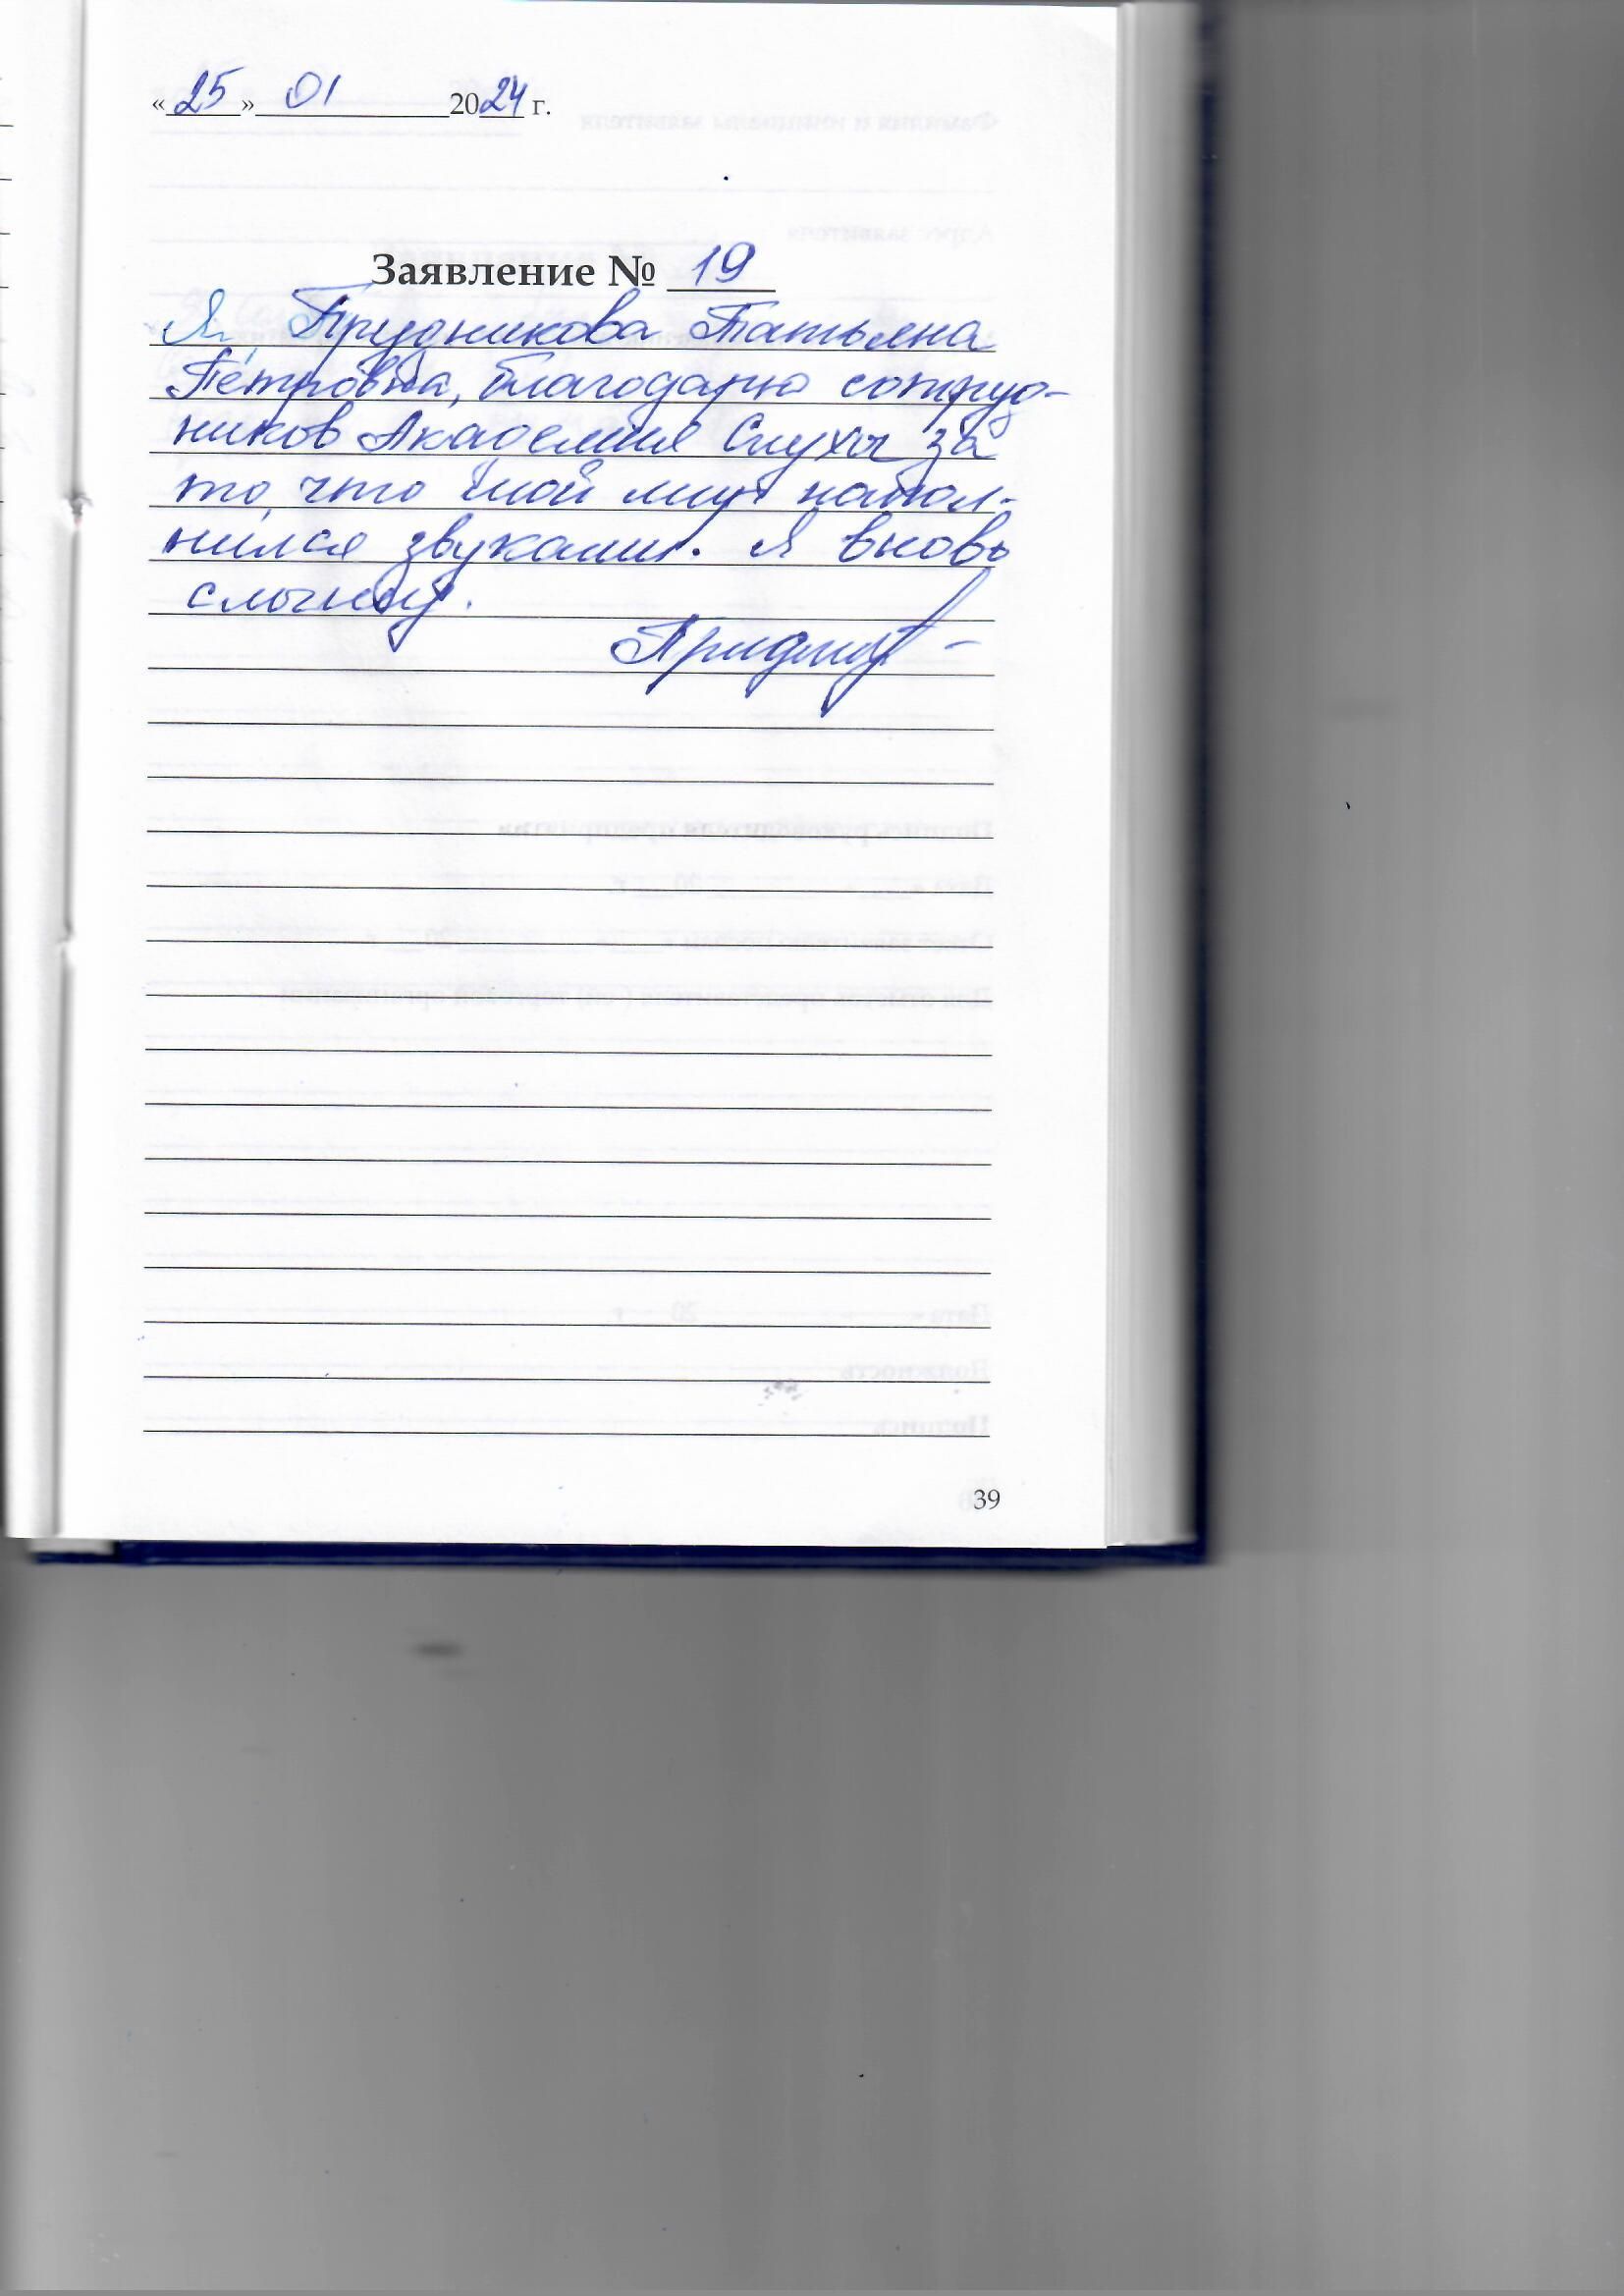 «25» 01 2024 г.
Заявление № 19
Я, Прудникова Татьяна
Петровна, благодарю сотруд-
ников Академия Слуха за
то, что мой мир напол-
нился звуками. Я вновь
слышу.
39